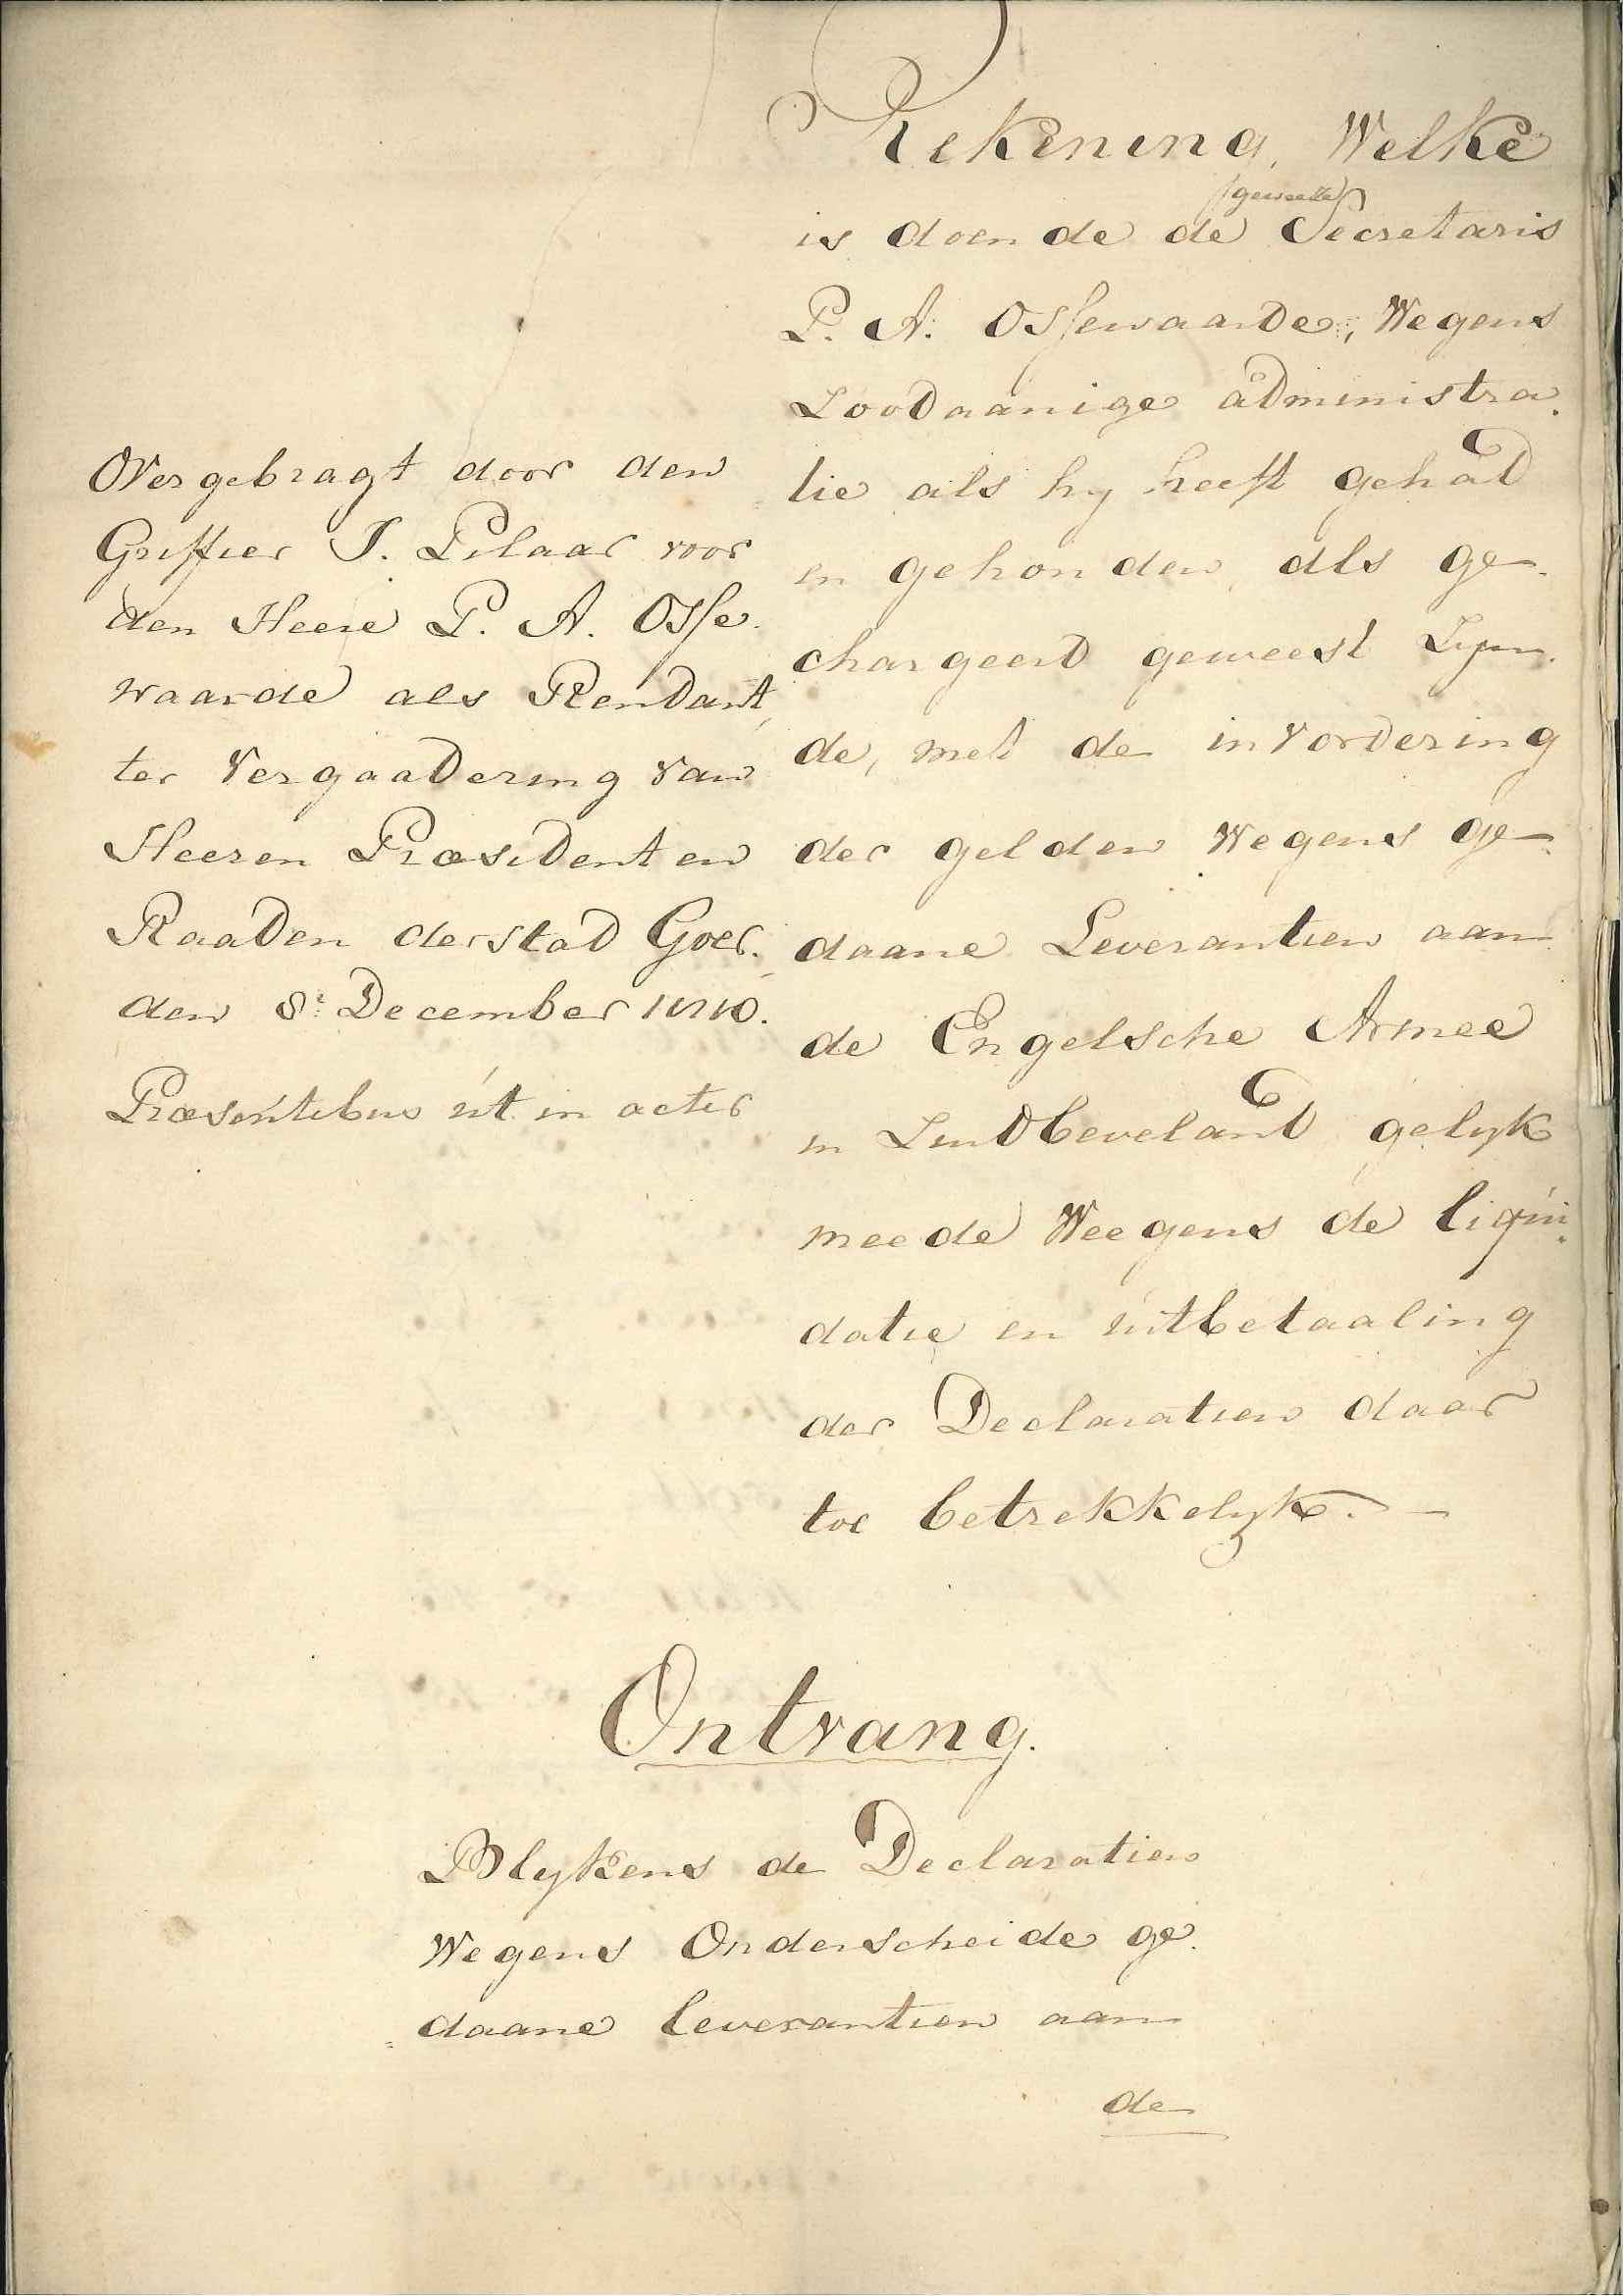 Rekening, Welke
(geweeze)
is doende de Secretaris
P. A. Ossewaarde, Wegens
Zoodaanige administra-
tie als hy heeft gehad
en gehouden, als ge-
chargeerd geweest Zyn-
de, met de invordering
der gelden Wegens ge-
daane Leverantien aan
de Engelsche Armee
in Zuidbeveland gelyk
meede Weegens de liqui-
datie en uitbetaaling
der Declaratien daar
toe betrekkelyk. —
Overgebragt door den
Griffier J. Pilaar voor
den Heere P. A. Osse-
waarde als Rendant,
ter Vergaadering van
Heeren Præsident en
Raaden der stad Goes.
den 8e December 1810.
Præsentibus ut in actis
Ontvang.
Blykens de Declaratien
Wegens Onderscheide ge-
daane leverantien aan
de